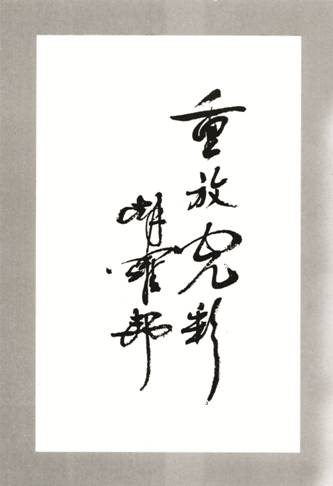 重放光彩
胡耀邦